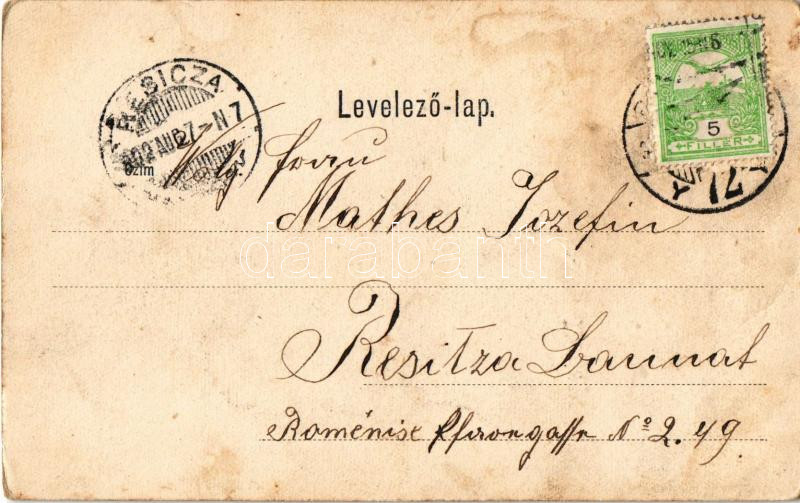 RESICZA
902 AUG 27 - N 7
Levelező-lap.
5
FILLÉR
Czim
Wlg Frau
Mathes Jozefin
darabanth
Resitza Baunat
Roménise Pfarrgasse No 2.49